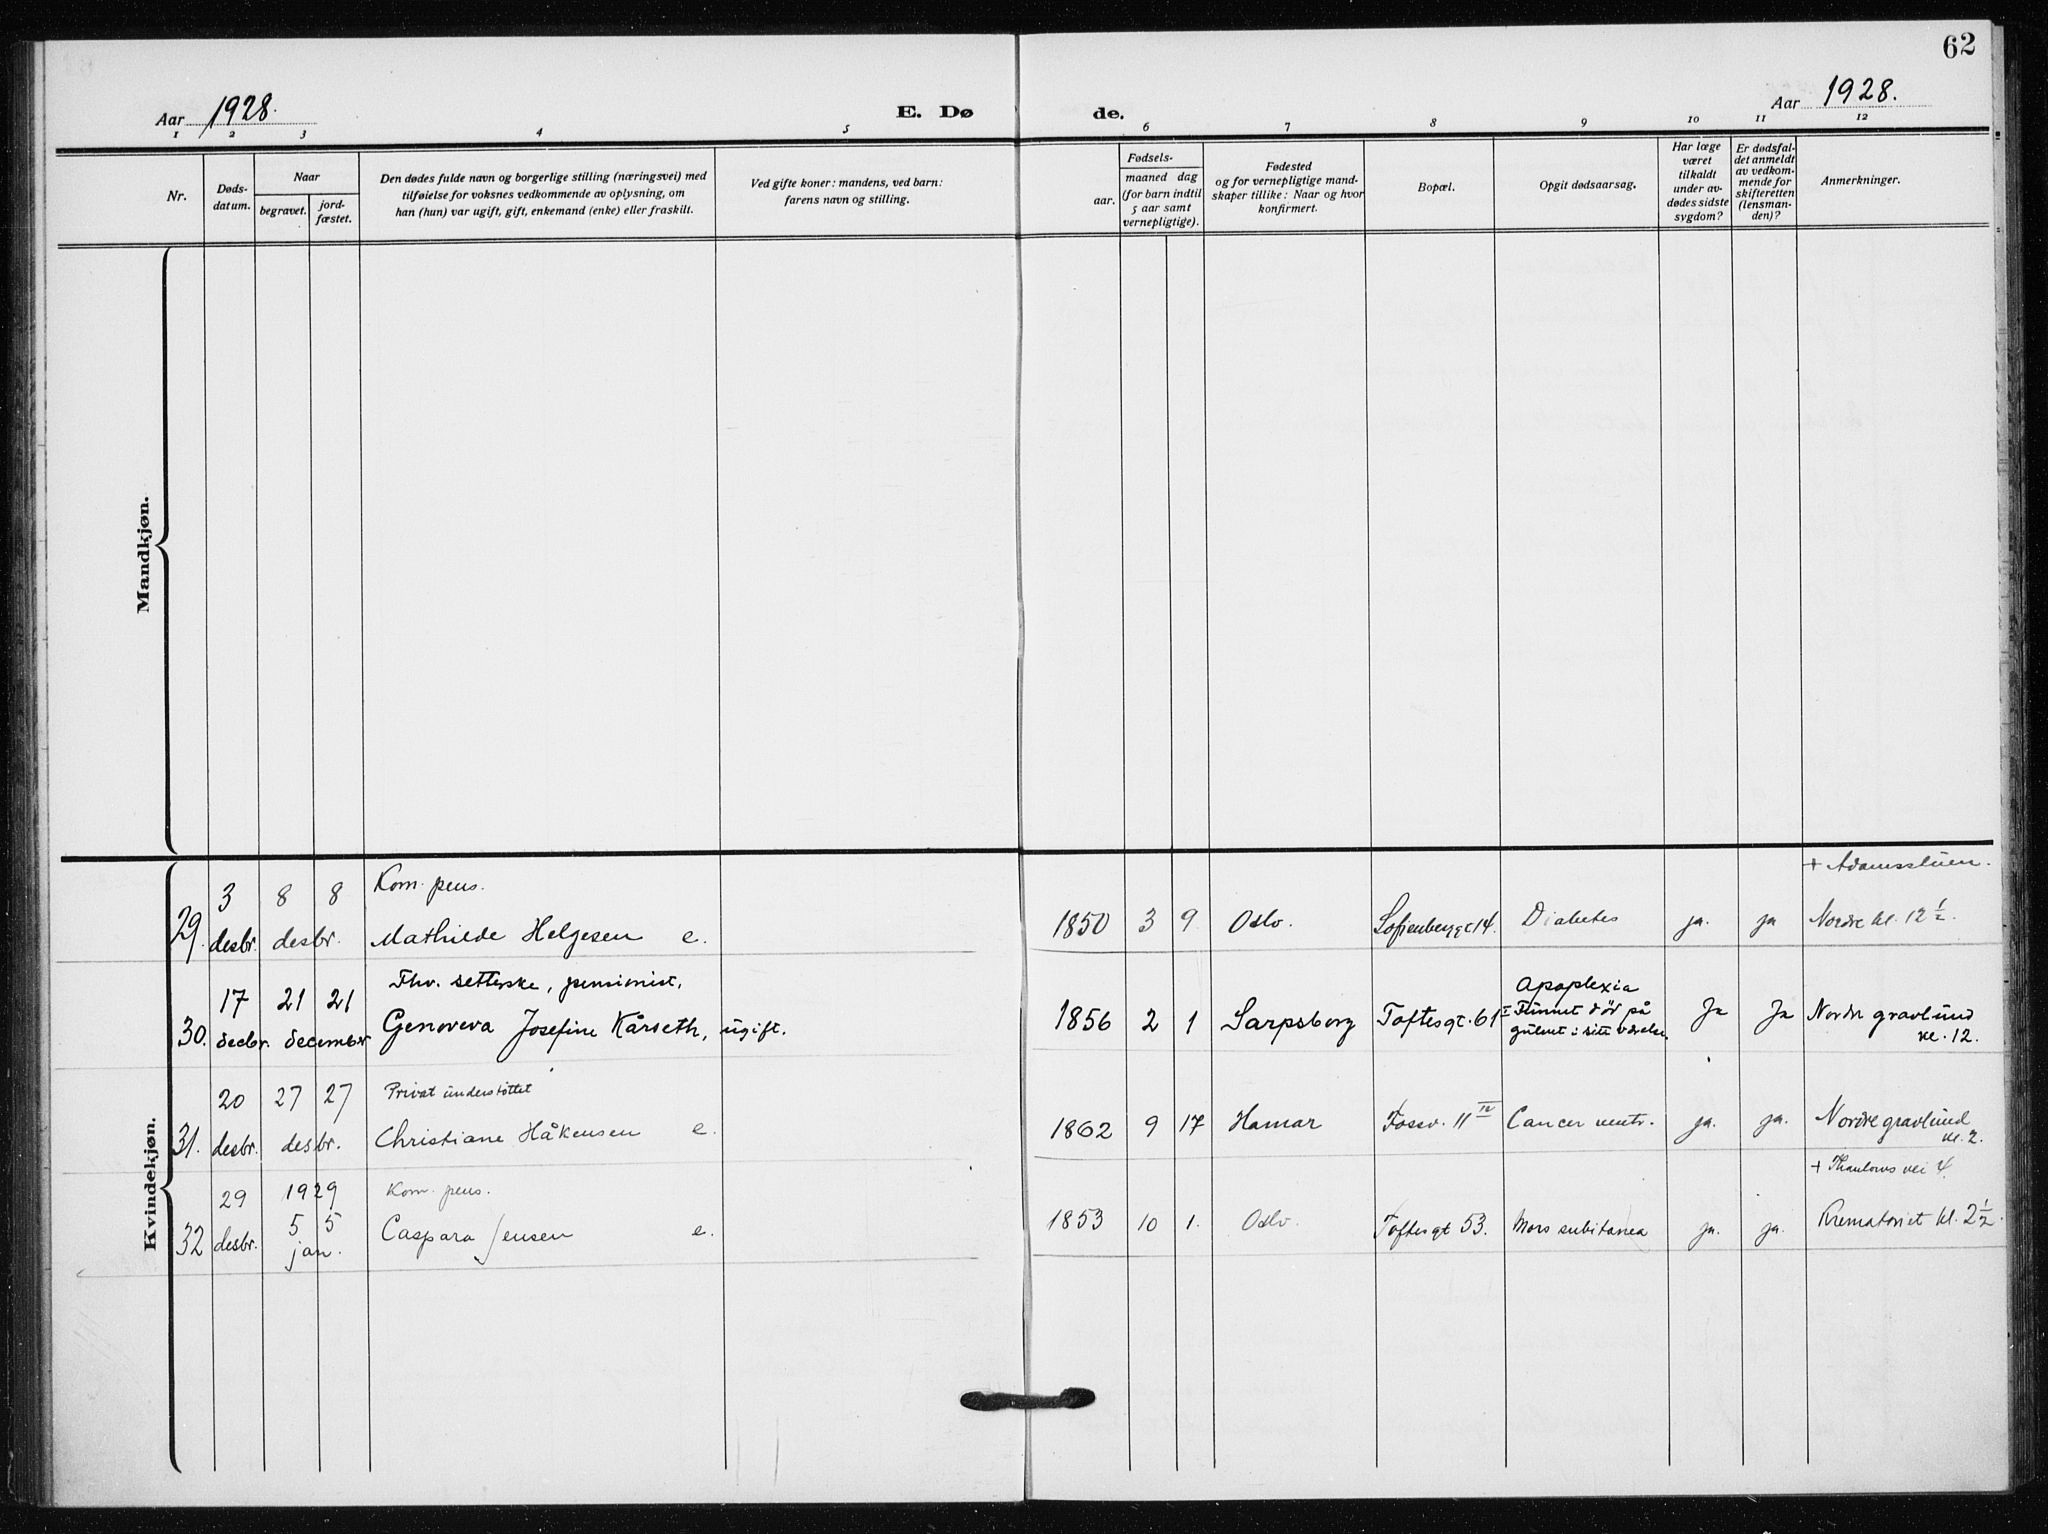 62
Aar 1928.
E. Dø
de.
Aar 1928.
1 2 3 4 5 6 7 8 9 10 11 12
Nr.
Døds-
datum.
Naar
begravet.
jord-
fæstet.
Den dødes fulde navn og borgerlige stilling (næringsvei) med
tilføielse for voksnes vedkommende av oplysning, om
han (hun) var ugift, gift, enkemand (enke) eller fraskilt.
Ved gifte koner: mandens, ved barn:
farens navn og stilling.
aar.
Fødsels-
maaned dag
(for barn indtil
5 aar samt
vernepligtige).
Fødested
og for vernepligtige mand-
skaper tillike: Naar og hvor
konfirmert.
Bopæl.
Opgit dødsaarsag.
Har læge
været
tilkaldt
under av-
dødes sidste
sygdom?
Er dødsfal-
det anmeldt
av vedkom-
mende for
skifteretten
(lensman-
den)?
Anmerkninger.
Mandkjøn.
Kvindekjøn.
+ Adamsstuen.
3 8 8 Kom. pens.
29. desbr. desbr. Mathilde Helgesen e. 1850 3 9 Oslo. Sofienberggt 14. Diabetes ja. ja Nordre kl. 12 1/2.
17 21 21 Fhv. setterske, pensionist, Apoplexia
30. decbr. december Genoveva Josefine Kårseth, ugift. 1856 2 1 Sarpsborg Toftesgt. 61 I Funnet död på Ja Ja Nordre gravlund
gulvet i sitt værelse. kl. 12.
20 27 27 Privat understöttet
31. desbr. desbr. Christiane Håkensen e. 1862 9 17 Hamar Fossv. 11 IV Cancer ventr. ja. ja. Nordre gravlund
kl. 2.
+ Thaulows vei 4.
29 1929 Kom. pens.
32 desbr. 5 5 Caspara Jensen e. 1853 10 1. Oslo. Toftesgt 53. Mors subitanea ja. ja. Krematoriet kl. 2 1/2.
jan.